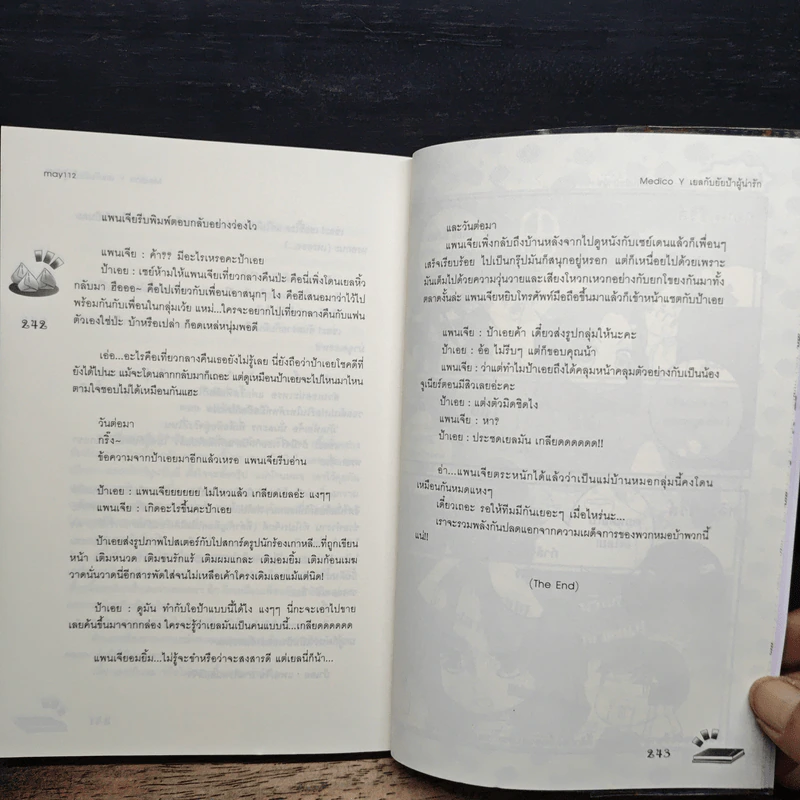 may112
แพนเจียรีบพิมพ์ตอบกลับอย่างว่องไว
แพนเจีย : ค้า?? มีอะไรเหรอคะป้าเอย
ป้าเอย : เซย์ห้ามให้แพนเจียเที่ยวกลางคืนปะ คือนี่เพิ่งโดนเยลหิ้ว
กลับมา ฮือออ~ คือไปเที่ยวกับเพื่อนเอาสนุกๆ ไง คือฮีเสนอมาว่าไว้ไป
พร้อมกันกับเพื่อนในกลุ่มเว้ย แหม่...ใครจะอยากไปเที่ยวกลางคืนกับแฟน
ตัวเองใช่ปะ บ้าหรือเปล่า ก็อดเหล่หนุ่มพอดี
242
เอ่อ...อะไรคือเที่ยวกลางคืนเธอยังไม่รู้เลย นี่ยังถือว่าป้าเอยโชคดีที่
ยังได้ไปนะ แม้จะโดนลากกลับมาก็เถอะ แต่ดูเหมือนป้าเอยจะไปไหนมาไหน
ตามใจชอบไม่ได้เหมือนกันแฮะ
วันต่อมา
กริ๊ง~
ข้อความจากป้าเอยมาอีกแล้วเหรอ แพนเจียรีบอ่าน
ป้าเอย : แพนเจียยยยยย ไม่ไหวแล้ว เกลียดเยลอ่ะ แงๆๆ
แพนเจีย : เกิดอะไรขึ้นคะป้าเอย
ป้าเอยส่งรูปภาพโปสเตอร์กับโปสการ์ดรูปนักร้องเกาหลี...ที่ถูกเขียน
หน้า เติมหนวด เติมขนรักแร้ เติมผมแกละ เติมอมยิ้ม เติมก้อนเมฆ
วาดนั่นวาดนี่อีกสารพัดใส่จนไม่เหลือเค้าโครงเดิมเลยแม้แต่นิด!
ป้าเอย : ดูมัน ทำกับโอป้าแบบนี้ได้ไง แงๆๆ นี่กะจะเอาไปขาย
เลยค้นขึ้นมาจากกล่อง ใครจะรู้ว่าเยลมันเป็นคนแบบนี้...เกลียดดดดดด
แพนเจียอมยิ้ม...ไม่รู้จะขำหรือว่าจะสงสารดี แต่เยลนี่ก็น้า...
Medico Y เยลกับยัยป้าผู้น่ารัก
และวันต่อมา
แพนเจียเพิ่งกลับถึงบ้านหลังจากไปดูหนังกับเซย์เดนแล้วก็เพื่อนๆ
เสร็จเรียบร้อย ไปเป็นกรุ๊ปมันก็สนุกอยู่หรอก แต่ก็เหนื่อยไปด้วยเพราะ
มันเต็มไปด้วยความวุ่นวายและเสียงโหวกเหวกอย่างกับยกโขยงกันมาทั้ง
ตลาดงั้นล่ะ แพนเจียหยิบโทรศัพท์มือถือขึ้นมาแล้วก็เข้าหน้าแชตกับป้าเอย
แพนเจีย : ป้าเอยค้า เดี๋ยวส่งรูปกลุ่มให้นะคะ
ป้าเอย : อ้อ ไม่รีบๆ แต่ก็ขอบคุณน้า
แพนเจีย : ว่าแต่ทำไมป้าเอยถึงได้คลุมหน้าคลุมตัวอย่างกับเป็นน้อง
จูเนียร์ตอนมีสิวเลยอ่ะคะ
ป้าเอย : แต่งตัวมิดชิดไง
แพนเจีย : หา?
ป้าเอย : ประชดเยลมัน เกลียดดดดดด!!
อ่า...แพนเจียตระหนักได้แล้วว่าเป็นแม่บ้านหมอกลุ่มนี้คงโดน
เหมือนกันหมดแหงๆ
เดี๋ยวเถอะ รอให้ทีมมีกันเยอะๆ เมื่อไหร่นะ...
เราจะรวมพลังกันปลดแอกจากความเผด็จการของพวกหมอบ้าพวกนี้
แน่!!
(The End)
243